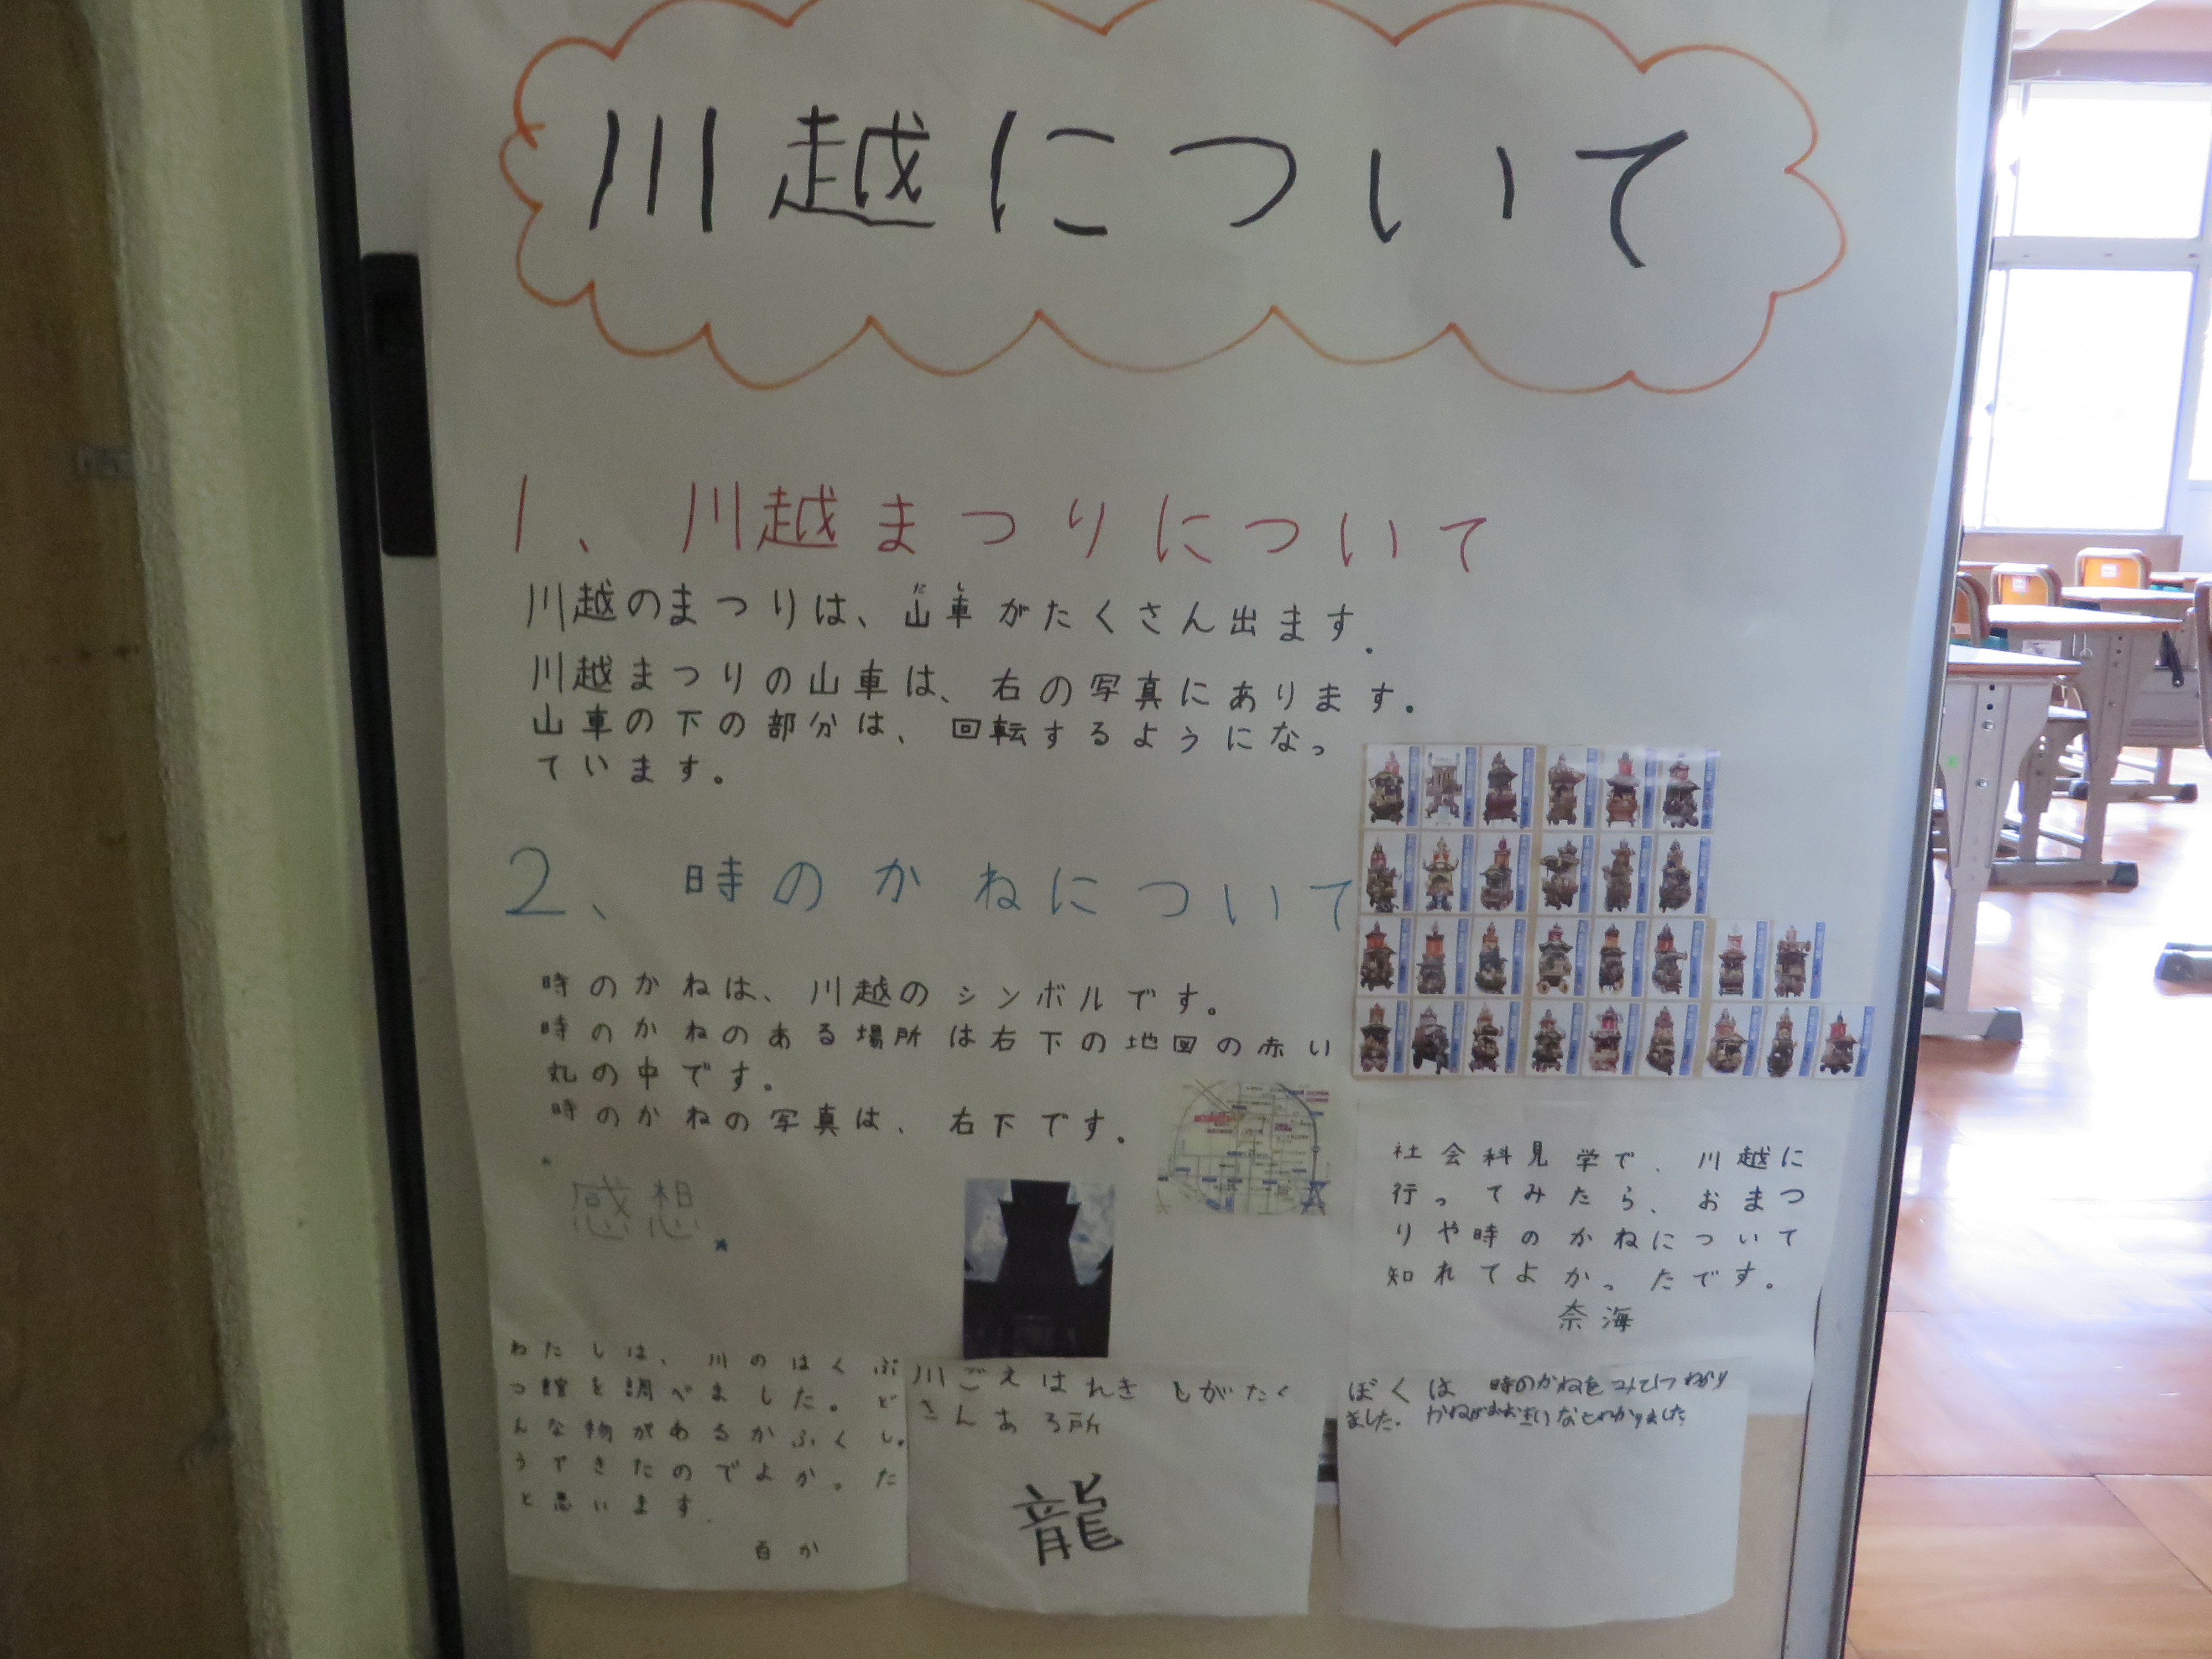 川越について
1、川越まつりについて
川越のまつりは、山車がたくさん出ます.
だし
川越まつりの山車は、右の写真にあります。
山車の下の部分は、回転するようになっ
ています。
2、時のかねについて
時のかねは、川越のシンボルです。
時のかねのある場所は右下の地図の赤い
丸の中です。
時のかねの写真は、右下です。
感想
社会科見学で、川越に
行ってみたら、おまつ
りや時のかねについて
知れてよかったです。
奈海
わたしは、川のはくぶ
つ館を調べました。ど
んな物があるかふくし。
うできたのでよかった
と思います.
百か
川ごえはれきしがたく
さんある所
龍
ぼくは 時のかねを
ました。かねがおおきいなとわかりました